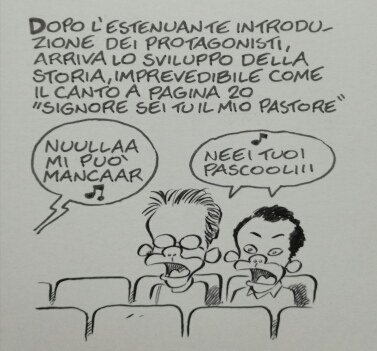 DOPO L'ESTENUANTE INTRODU-
ZIONE DEI PROTAGONISTI,
ARRIVA LO SVILUPPO DELLA
STORIA, IMPREVEDIBILE COME
IL CANTO A PAGINA 20
"SIGNORE SEI TU IL MIO PASTORE"
NUULLAA
MI PUO'
MANCAAR
NEEI TUOI
PASCOOLIII